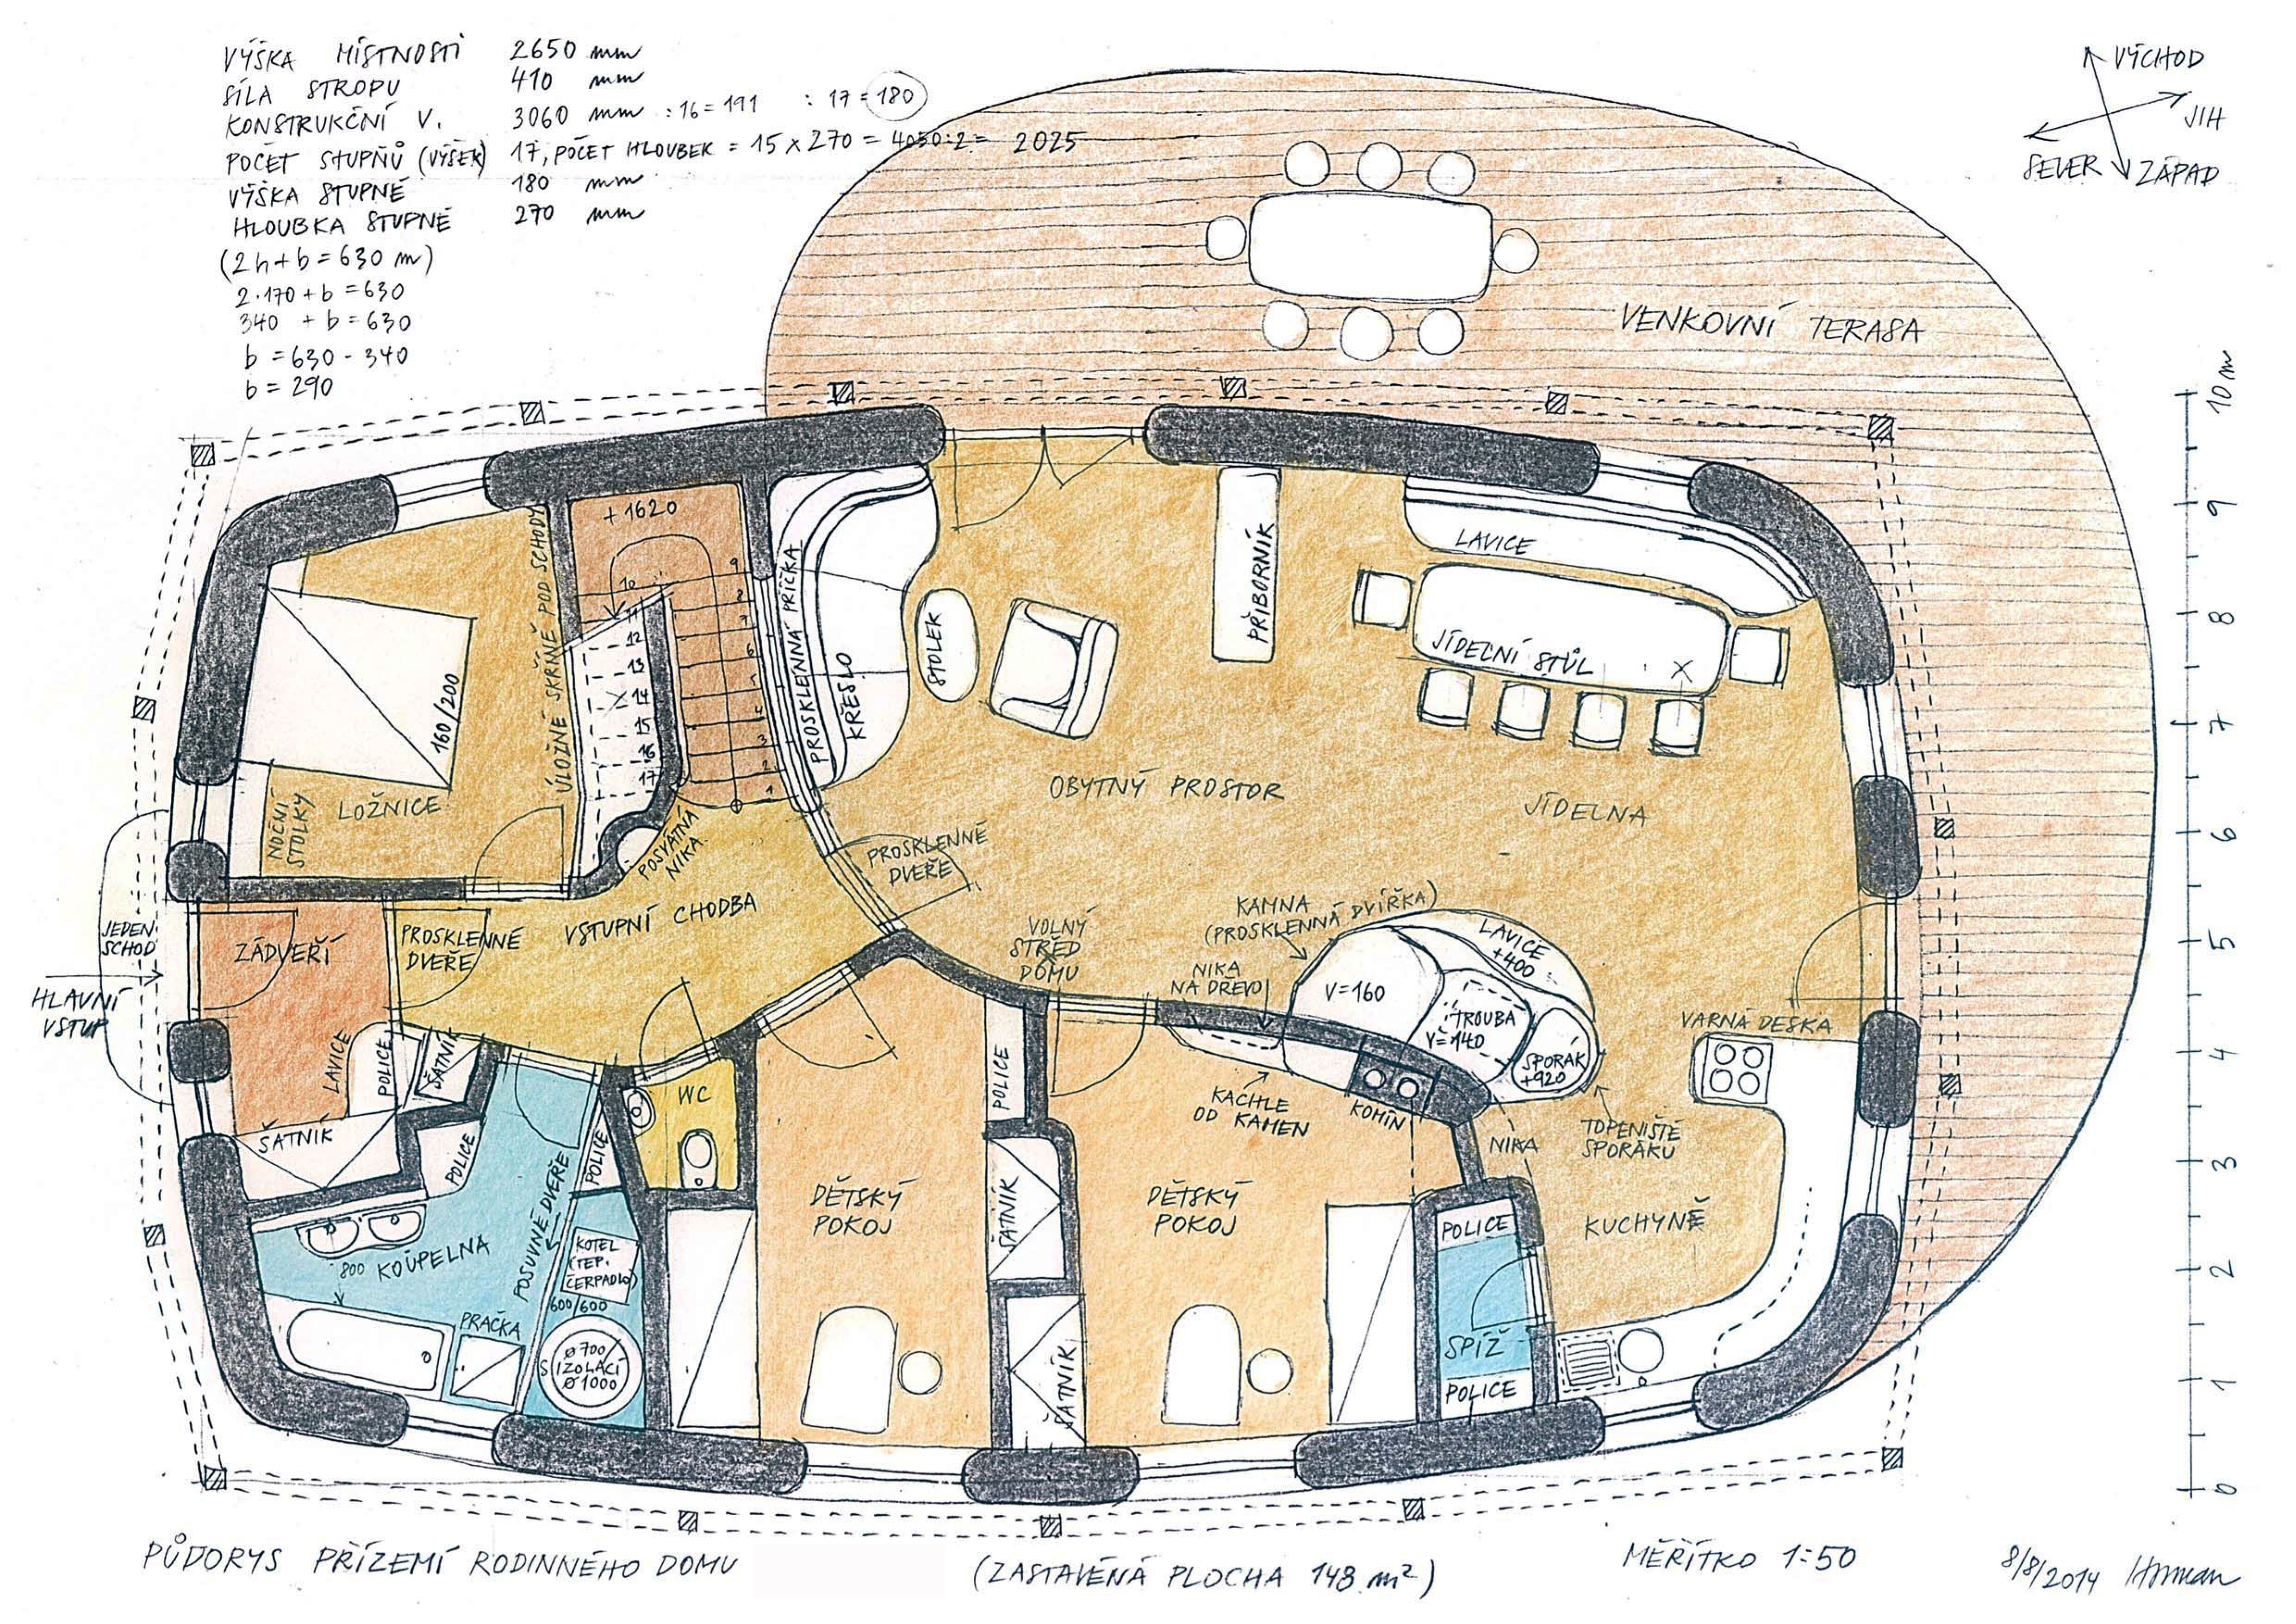 VÝŠKA MÍSTNOSTÍ 2650 mm
SÍLA STROPU 410 mm
KONSTRUKČNÍ V. 3060 mm :16=191 :17=180
POČET STUPŇŮ (VÝŠEK) 17, POČET HLOUBEK = 15 x 270 = 4050:2= 2025
VÝŠKA STUPNĚ 180 mm
HLOUBKA STUPNĚ 270 mm
(2h+b=630 m)
2·170+b=630
340 +b=630
b=630-340
b=290
VÝCHOD
JIH
SEVER
ZÁPAD
VENKOVNÍ TERASA
10 m
9
8
7
6
5
4
3
2
1
0
+1620
ÚLOŽNÉ SKŘÍNĚ POD SCHODY
10
11
12
13
14
15
16
17
9
8
7
6
5
4
3
2
1
PROSKLENNÁ PŘÍČKA
KŘESLO
STOLEK
PŘÍBORNÍK
LAVICE
JÍDELNÍ STŮL
160/200
NOČNÍ
STOLKY
LOŽNICE
POSVÁTNÁ
NIKA
OBYTNÝ PROSTOR
JÍDELNA
PROSKLENNÉ
DVEŘE
JEDEN
SCHOD
HLAVNÍ
VSTUP
ZÁDVEŘÍ
PROSKLENNÉ
DVEŘE
VSTUPNÍ CHODBA
VOLNÝ
STŘED
DOMU
KAMNA
(PROSKLENNÁ DVÍŘKA)
NIKA
NA DŘEVO
V=160
LAVICE
+400
TROUBA
V=140
SPORÁK
+920
VARNÁ DESKA
LAVICE
POLICE
ŠATNÍK
ŠATNÍK
WC
POLICE
KACHLE
OD KAMEN
KOMÍN
NIKA
TOPENIŠTĚ
SPORÁKU
POLICE
POLICE
POSUVNÉ DVEŘE
KOUPELNA
800
KOTEL
(TEP.
ČERPADLO)
600/600
PRAČKA
Ø700
S IZOLACÍ
Ø1000
DĚTSKÝ
POKOJ
ŠATNÍK
ŠATNÍK
DĚTSKÝ
POKOJ
POLICE
SPÍŽ
POLICE
KUCHYNĚ
PŮDORYS PŘÍZEMÍ RODINNÉHO DOMU
(ZASTAVĚNÁ PLOCHA 148 m²)
MĚŘÍTKO 1:50
8/8/2014